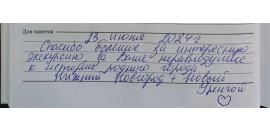 Для заметок
23 июня 2024 г
Спасибо большое за интересную
экскурсию за Ваше неравнодушие
к истории родного города
Нижний Новгород + Новый
Уренгой